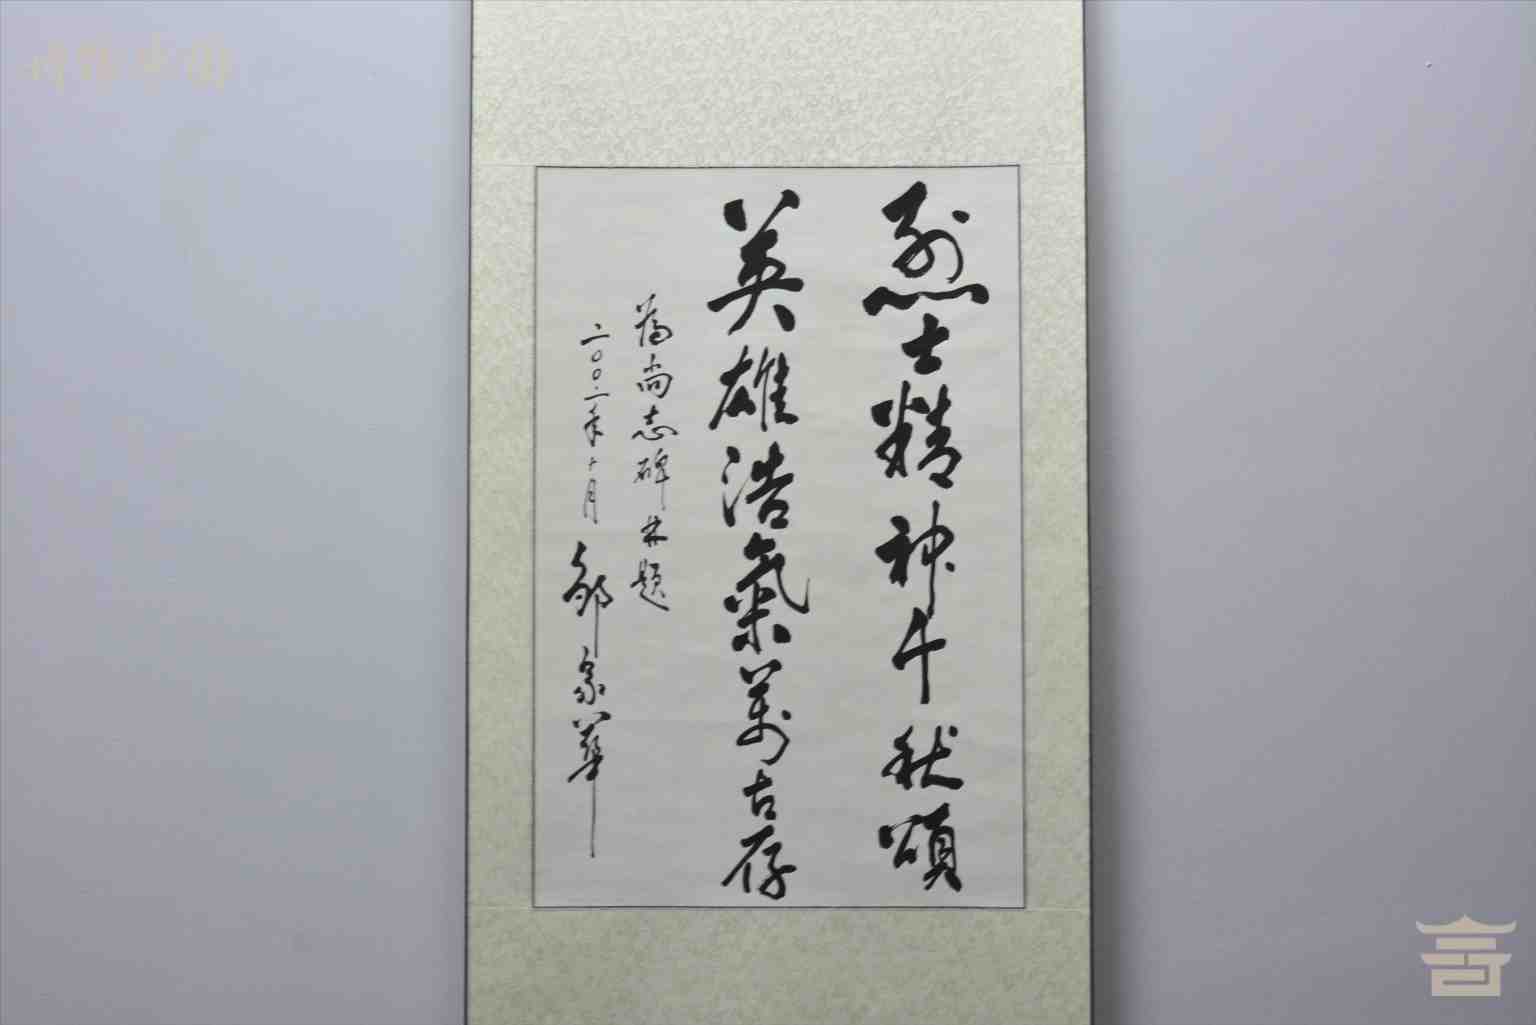 烈士精神千秋頌
英雄浩氣萬古存
為尚志碑林題
二〇〇二年十月 鄒家華
博物中国